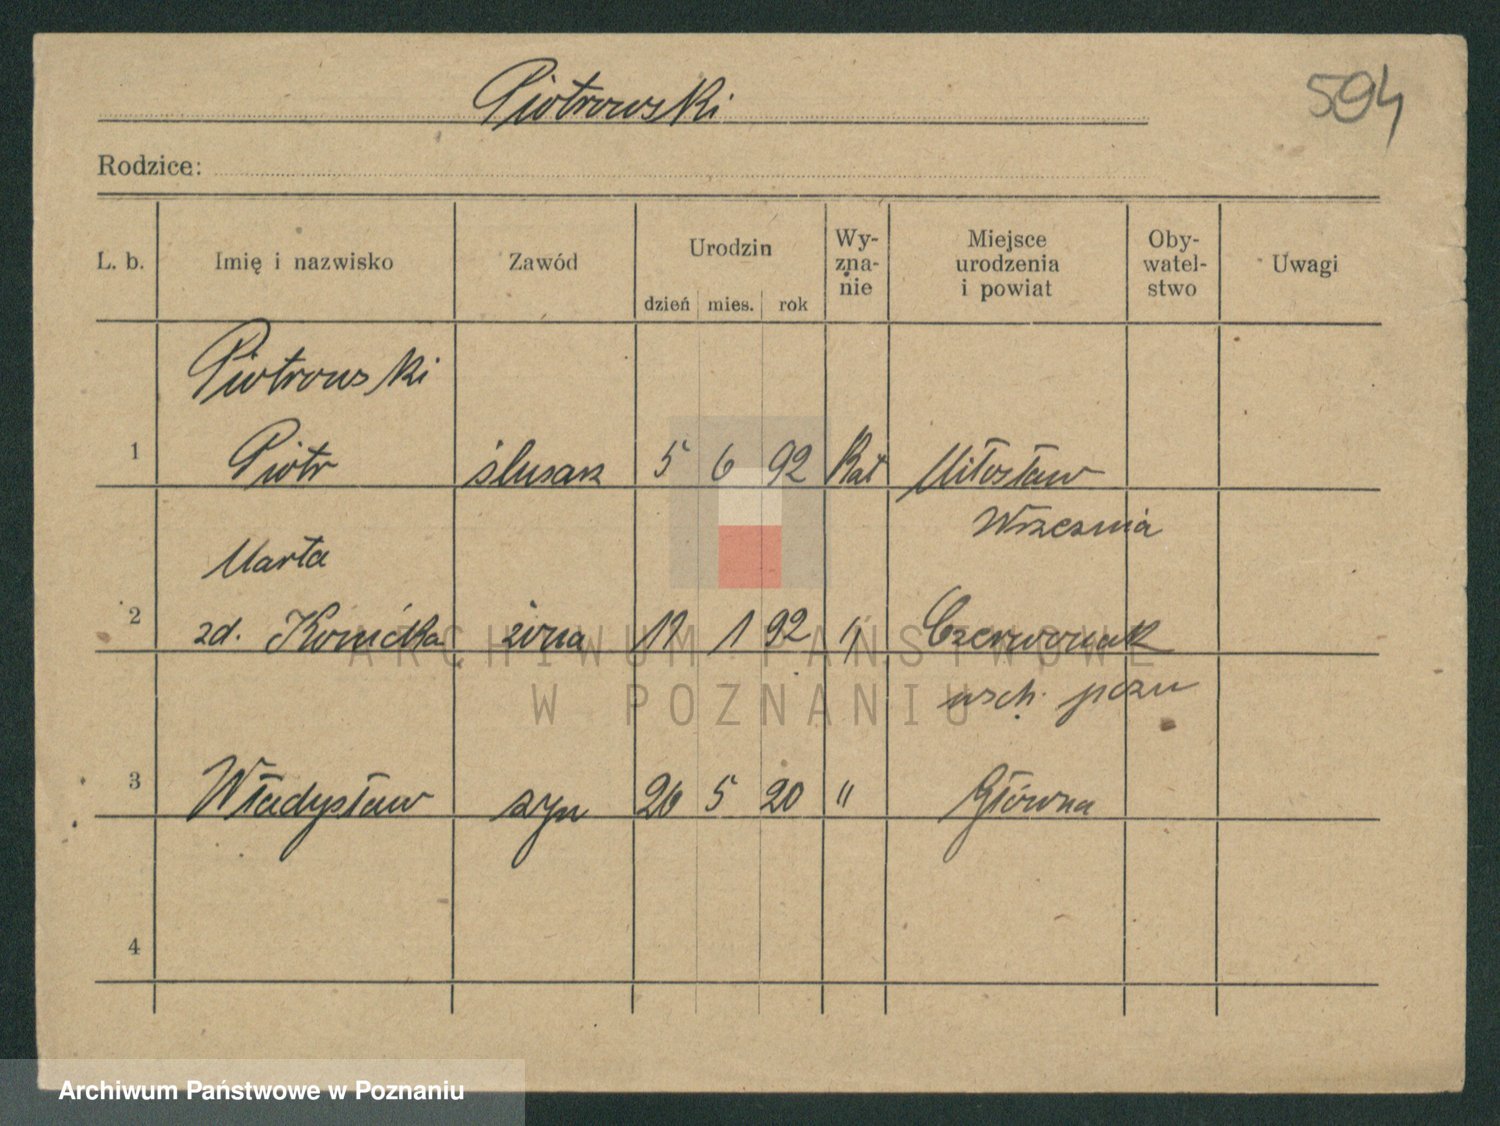 Piotrowski
594
Rodzice:
L. b. Imię i nazwisko Zawód Urodzin dzień mies. rok Wy-zna-nie Miejsce urodzenia i powiat Oby-watel-stwo Uwagi
Piotrowski
1 Piotr ślusarz 5 6 92 Kat Miłosław
Września
Marta
2 zd. żona 1 92 " Czerwonak
wsch. pozn
3 Władysław syn 26 5 20 " Główna
4
ARCHIWUM PAŃSTWOWE
W POZNANIU
Archiwum Państwowe w Poznaniu